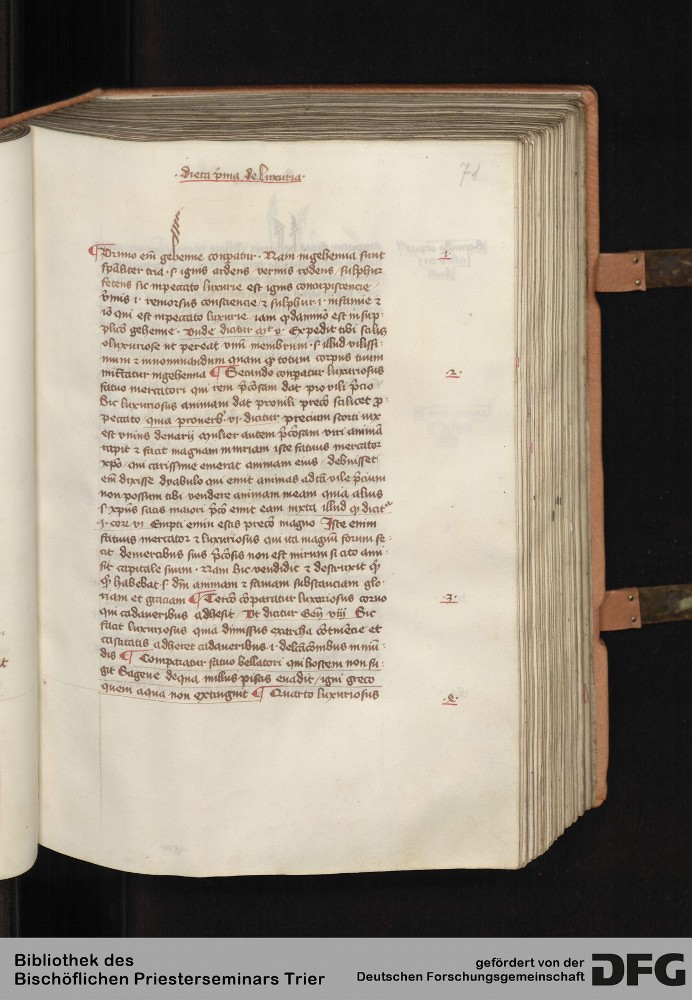 dieta p̄ma de luxuria
71
Primo em̄ gehenne conpatur · Nam in gehenna sunt
1
sp̄aliter tria · s · ignis ardens vermis rodens / sulphur
fetens sic in peccato luxurie est ignis concupiscencie
v̄mis i · remorsus consciencie ⁊ sulphur · i · infamie ⁊
iō qui est in peccato luxurie iam q̄ dam̄no est in sup-
plicō gehenne · Vnde dicitur Expedit tibi scilicꝫ
o luxuriose ut pereat vnū membrum · s · illud vilissi-
mum ⁊ innominandum quam ꝙ totum corpus tuum
mittatur in gehenna ¶ Secundo conpatur luxuriosus
2
fatuo mercatori qui rem p̄cōsam dat pro vili p̄cio
Sic luxuriosus animam dat pro vili precō scilicet ꝓ
peccato quia proverb · vi · dicitur precium scorti vix
est vnius denarij mulier autem p̄cōsam viri animā
rapit ⁊ facit magnam iniuriam iste fatuus mercator
xp̄o / qui carissime emerat animam eius / debuisset
em̄ dixisse dyabulo qui emit animas ad tā vile p̄cium
non possum tibi vendere animam meam quia alius
s · xp̄us satis maiori p̄cō emit eam iuxta illud ꝙ dicitᷣ
1 · cor · vi Empti enim estis precō magno Iste enim
fatuus mercator ⁊ luxuriosus qui ita magnū forum fe-
cit de mercibus suis p̄cōsis non est mirum si cito ami-
sit capitale suum · Nam hic vendidit ⁊ destruxit
habebat s · animam ⁊ suam substanciam glo-
riam et graciam ¶ Tercō cōparatur luxuriosus corvo
3
qui cadaveribus adhesit Vt dicitur Geñ viii Sic
facit luxuriosus quia dimissus cōtinēcie et
castitatis adheret cadaveribus · i · delcācōnibus mun-
dis ¶ Comparatur fatuo bellatori qui hostem non fu-
git Sagene de qua nullus piscis evadit / igni greco
quem aqua non extinguit ¶ Quarto luxuriosus
Bibliothek des
Bischöflichen Priesterseminars Trier
gefördert von der
Deutschen Forschungsgemeinschaft
DFG